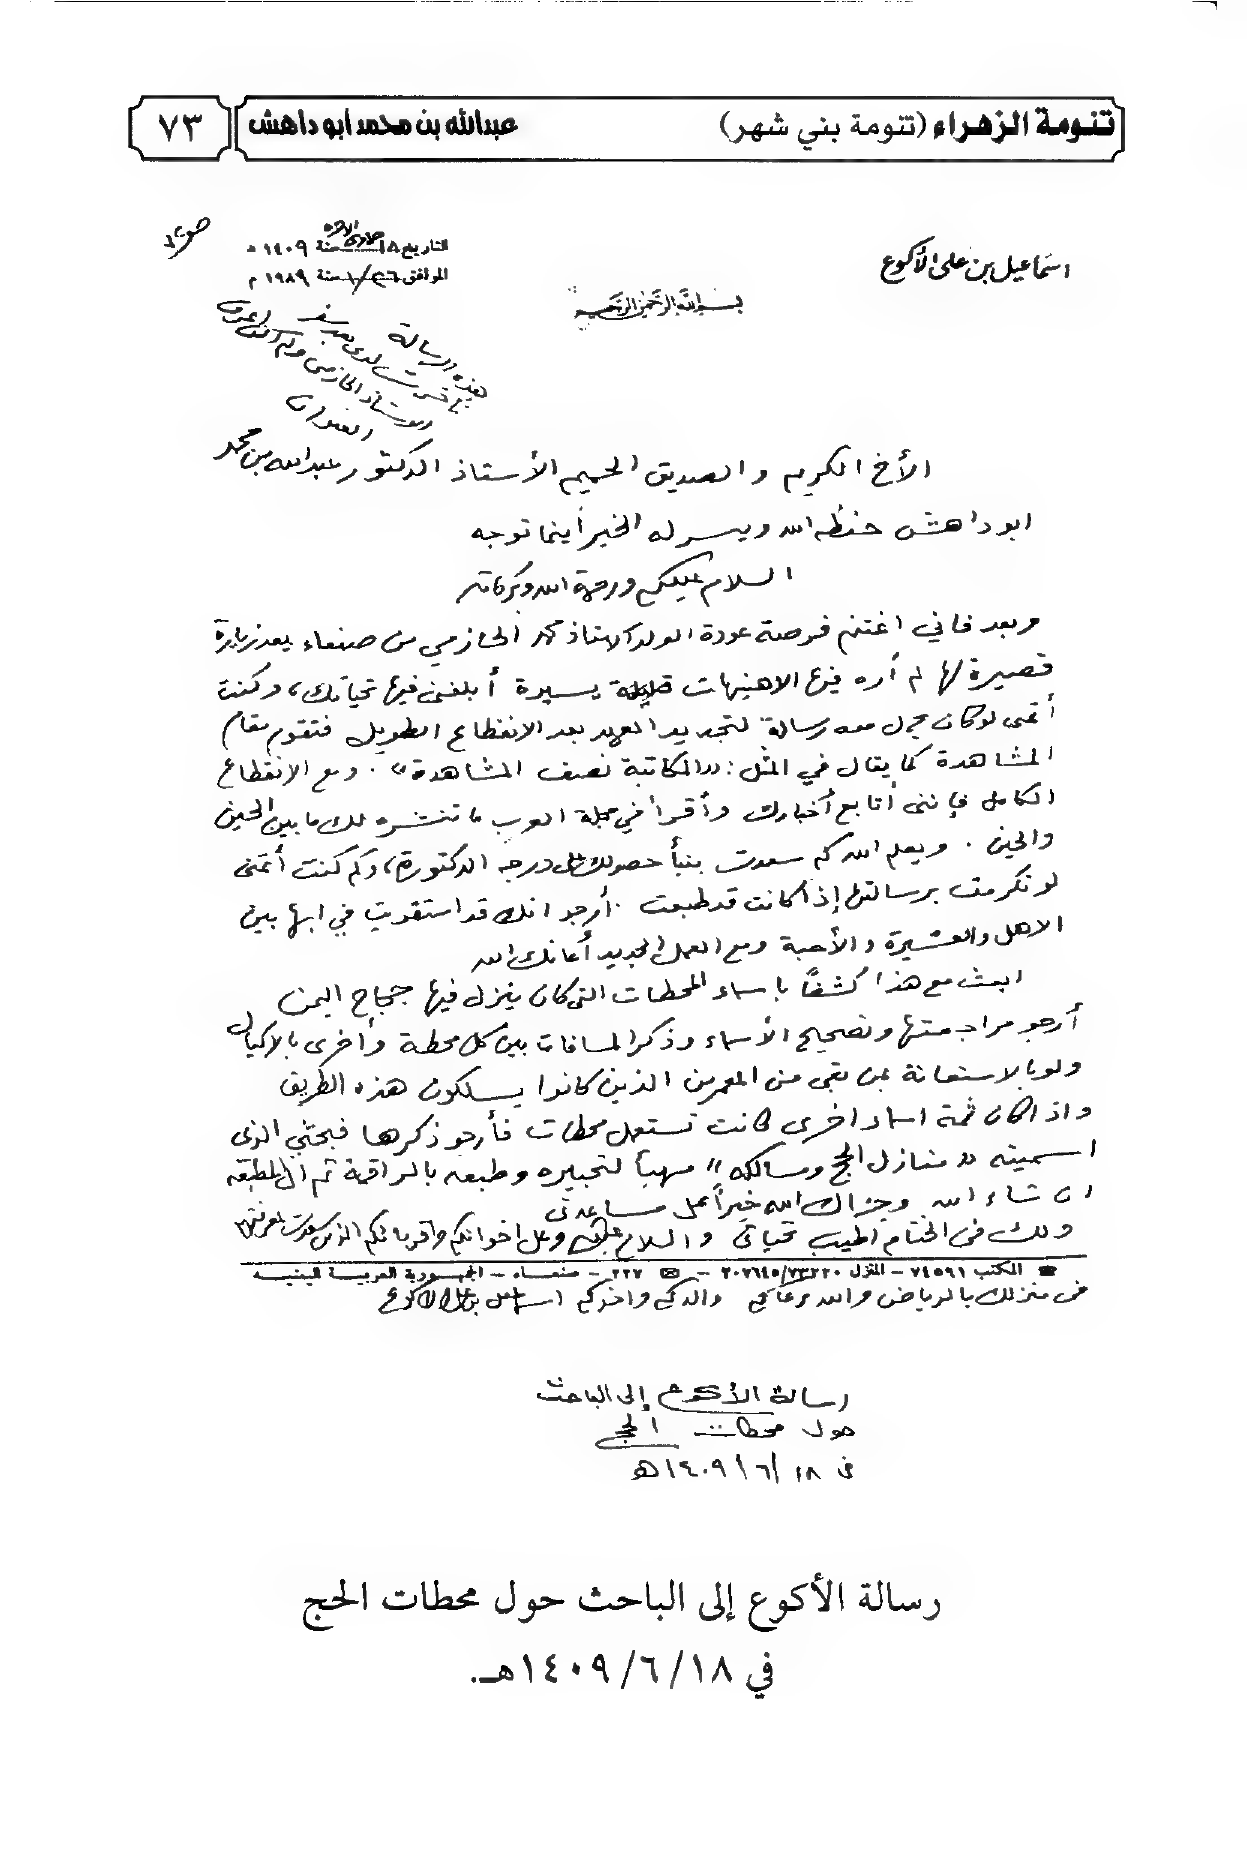 تنومة الزهراء (تنومة بني شهر) عبدالله بن محمد أبو داهش ٧٣
اسماعيل بن علي الأكوع
بسم الله الرحمن الرحيم
التاريخ ١٨ جمادى الآخرة سنة ١٤٠٩ هـ
الموافق ٢٦/١ سنة ١٩٨٩ م
هذه الرسالة
تأخرت لدى بعد سفر
الاستاذ الحازمي ولم أكن أعرف
العنوان
الأخ الكريم والصديق الحميم الأستاذ الدكتور عبدالله بن محمد
ابو داهش حفظه الله ويسر له الخير أينما توجه
السلام عليكم ورحمة الله وبركاته
وبعد فاني اغتنم فرصة عودة الولد الاستاذ محمد الحازمي من صنعاء بعد زيارة
قصيرة لها لم أره فيها الا هنيهات قليلة يسيرة أبلغني فيها تحياتك، وكنت
أتمنى لو كان يحمل معه رسالة لتجديد العهد بعد الانقطاع الطويل فتقوم مقام
المشاهدة كما يقال في المثل: «المكاتبة نصف المشاهدة» . ومع الانقطاع
الكامل فإنني أتابع أخبارك وأقرأ في مجلة العرب ما تنشره لك ما بين الحين
والحين . ويعلم الله كم سعدت بنبأ حصولك على درجه الدكتوراة، وكم كنت أتمنى
لو تكرمت برسالتها إذا كانت قد طبعت . أرجو انك قد استقريت في ابها بين
الاهل والعشيرة والأحبة ومع العمل الجديد أعانك الله
ابعث مع هذا كشفاً بأسماء المحطات التي كان ينزل فيها حجاج اليمن
أرجو مراجعتها وتصحيح الأسماء وذكر المسافات بين كل محطة وأخرى بالاكيال
ولو بالاستعانة بمن بقي من المعمرين الذين كانوا يسلكون هذه الطريق
واذا كان ثمة اسماء اخرى كانت تستعمل محطات فأرجو ذكرها فبحثي الذي
اسميته «منازل الحج ومسالكه» مهيأ لتحبيره وطبعه بالراقمة ثم الى المطبعة
ان شاء الله وجزاك الله خيراً على مساعدتي
ولك في الختام اطيب تحياتي والسلام عليك وعلى اخوانكم وأقربائكم الذين سعدت بمعرفتهم
☎ المكتب ٧٤٥٩١ - المنزل ٢٠٧٦٤٥/٧٣٢٢٠ - ✉ ٢٢٧ - صنعاء - الجمهورية العربية اليمنية
في منزلك بالرياض والله يرعاكم والدكم وأخوكم اسماعيل بن علي الأكوع
رسالة الأكوع إلى الباحث
حول محطات الحج
في ١٨/٦/١٤٠٩هـ
رسالة الأكوع إلى الباحث حول محطات الحج
في ١٨/٦/١٤٠٩هـ.